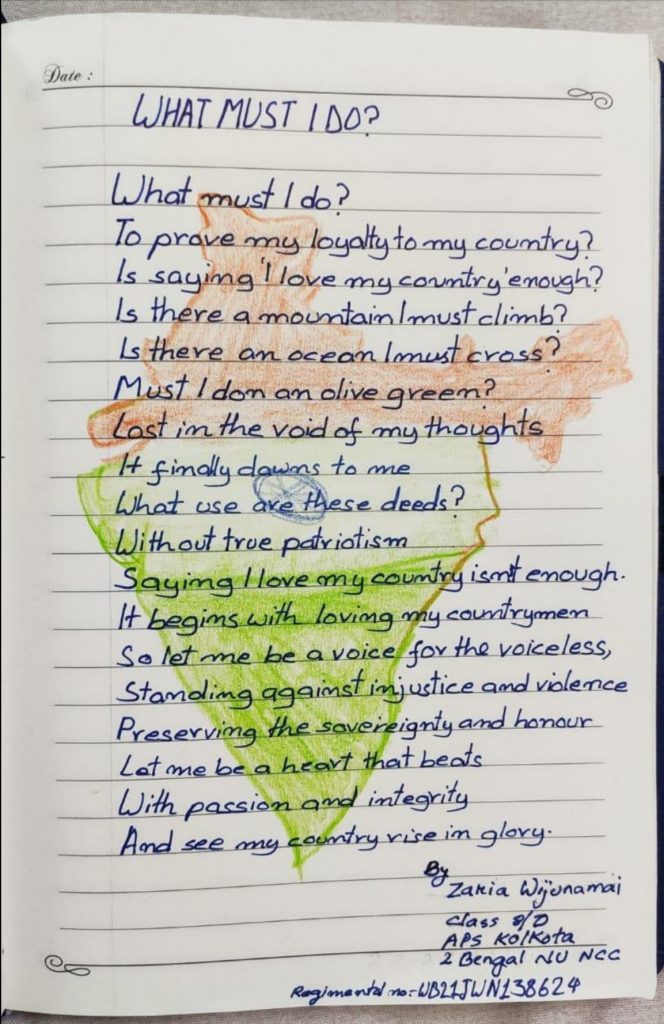 Date :
WHAT MUST I DO?
What must I do?
To prove my loyalty to my country?
Is saying 'I love my country' enough?
Is there a mountain I must climb?
Is there an ocean I must cross?
Must I don an olive green?
Lost in the void of my thoughts
It finally dawns to me
What use are these deeds?
Without true patriotism
Saying I love my country isn't enough.
It begins with loving my countrymen
So let me be a voice for the voiceless,
Standing against injustice and violence
Preserving the sovereignty and honour
Let me be a heart that beats
With passion and integrity
And see my country rise in glory.
By
Zaria Wijunamai
Class 8/D
APS Kolkota
2 Bengal NU NCC
Regimental no:-WB21JWN138624